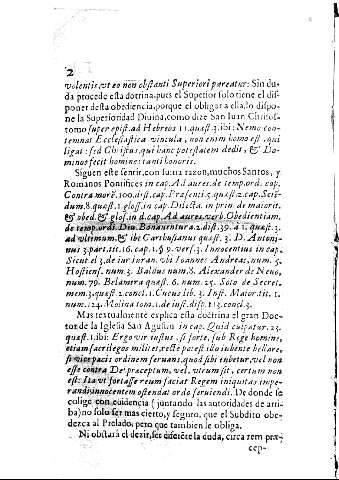 2
volentis, vt eo non obstanti Superiori pareatur: Sin du-
da procede esta dotrina, pues el Superior solo tiene el dis-
poner desta obediencia, porque el obligar a ella, lo dispo-
ne la Superioridad Divina, como dize San Iuan Chrisos-
tomo super epist. ad Hebreos 11. quæst. 3. ibi: Nemo con-
temnat Ecclesiastica vincula, non enim homo est, qui
ligat: sed Christus, qui hanc potestatem dedit, & Do-
minos fecit homines tanti honoris.
Siguen este sentir, con suma razon, muchos Santos, y
Romanos Pontifices in cap. Ad aures. de temp. ord. cap.
Contra morē. 100. dist. cap. Præsenti. 5. quæst. 2. cap. Sciē-
dum. 8. quæst. 1. gloss. in cap. Dilecta. in prin. de maiorit.
& obed. & glos. in d. cap. Ad aures. verb. Obedientiam,
de temp. ordi. Diu. Bonauentura 2. dist. 39. a 1. quæst. 3.
ad vltimum, & ibi Carthusianus quæst. 3. D. Antoni-
nus 3. part. tit. 16. cap. 1. § 9. vers. 3. Innocentius in cap.
Sicut el 3. de iur iuran. vbi Ioannes Andreas, num. 5.
Hostiens. num. 3. Baldus num. 8. Alexander de Neuo,
num. 79. Belamera quæst. 6. num. 25. Soto de Secret.
mem. 3. quæst. 2. concl. 1. Cneus lib. 3. Inst. Maior. tit. 1.
num. 124. Molina tom. 1. de iust. disp. 113. concl. 4.
Mas textualmente explica esta doctrina el gran Doc-
tor de la Iglesia San Agustin in cap. Quid culpatur. 23.
quæst. 1. ibi: Ergo vir iustus, si forte, sub Rege homine,
etiam sacrilego militet, recte potest illo iubente bellare,
si vice pacis ordinem seruans, quod sibi iubetur, vel non
esse contra Dei præceptum, vel, vtrum sit, certum non
est: Ita vt fortasse reum faciat Regem iniquitas impe-
randi, innocentem ostendat ordo seruiendi. De donde se
colige con euidencia (juntando las autoridades de arri-
ba) no solo ser mas cierto, y seguro, que el Subdito obe-
dezca al Prelado, pero que tambien le obliga.
Ni obstará el dezir, ser diferēte la duda, circa rem præ-
cep-